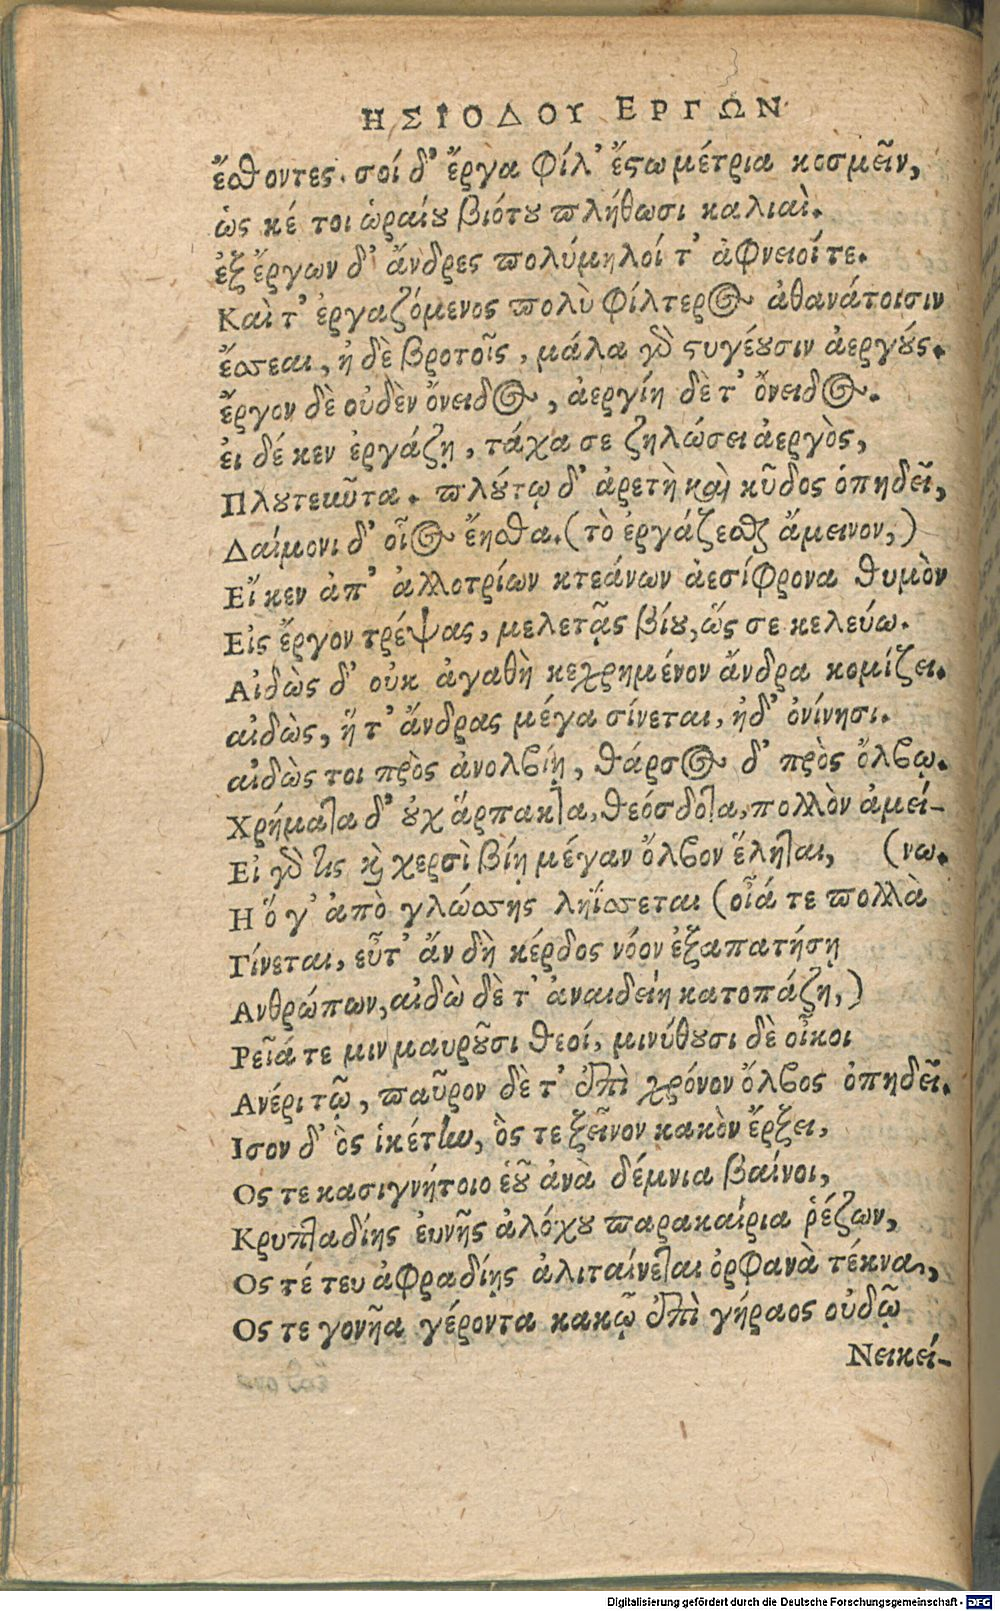 ΗΣΙΟΔΟΥ ΕΡΓΩΝ
ἔσθοντες. σοί δ' ἔργα φίλ' ἔστω μέτρια κοσμεῖν,
ὡς κέ τοι ὡραίου βιότου πλήθωσι καλιαὶ.
ἐξ ἔργων δ' ἄνδρες πολύμηλοί τ' ἀφνειοίτε.
Καὶ τ' ἐργαζόμενος πολὺ φίλτερος ἀθανάτοισιν
ἔσσεαι, ἠ δὲ βροτοῖς, μάλα γὰρ στυγέουσιν ἀεργούς.
ἔργον δὲ οὐδὲν ὄνειδος, ἀεργίη δὲ τ' ὄνειδος.
ἐι δέ κεν ἐργάζῃ, τάχα σε ζηλώσει ἀεργὸς,
Πλουτεῦντα. πλούτῳ δ' ἀρετὴ καὶ κῦδος ὀπηδεῖ,
Δαίμονι δ' οἷος ἔησθα. (τὸ ἐργάζεσθαι ἄμεινον,)
Εἴ κεν ἀπ' ἀλλοτρίων κτεάνων ἀεσίφρονα θυμὸν
Εἰς ἔργον τρέψας, μελετᾷς βίου, ὥς σε κελεύω.
Αἰδὼς δ' οὐκ ἀγαθὴ κεχρημένον ἄνδρα κομίζει.
αἰδὼς, ἥ τ' ἄνδρας μέγα σίνεται, ἠδ' ὀνίνησι.
αἰδὼς τοι πρὸς ἀνολβίῃ, θάρσος δ' πρὸς ὄλβῳ.
Χρήματα δ' οὐχ ἅρπακτα, θεόσδοτα, πολλὸν ἀμεί-
Εἰ γὰρ τις καὶ χερσὶ βίῃ μέγαν ὄλβον ἕληται, (νω.
Η ὅ γ' ἀπὸ γλώσσης ληΐσσεται (οἷά τε πολλὰ
Γίνεται, εὖτ' ἄν δὴ κέρδος νόον ἐξαπατήσῃ
Ανθρώπων, αἰδὼ δὲ τ' ἀναιδείη κατοπάζῃ,)
Ρεῖά τε μιν μαυροῦσι θεοί, μινύθουσι δὲ οἶκοι
Ανέρι τῷ, παῦρον δὲ τ' ἐπὶ χρόνον ὄλβος ὀπηδεῖ.
Ισον δ' ὃς ἱκέτην, ὅς τε ξεῖνον κακὸν ἔρξει,
Ος τε κασιγνήτοιο ἑοῦ ἀνὰ δέμνια βαίνοι,
Κρυπταδίης ἐυνῆς ἀλόχου παρακαίρια ῥέζων,
Ος τέ τευ ἀφραδίῃς ἀλιταίνεται ὀρφανὰ τέκνα,
Ος τε γονῆα γέροντα κακῷ ἐπὶ γήραος οὐδῷ
Νεικεί-
Digitalisierung gefördert durch die Deutsche Forschungsgemeinschaft - DFG